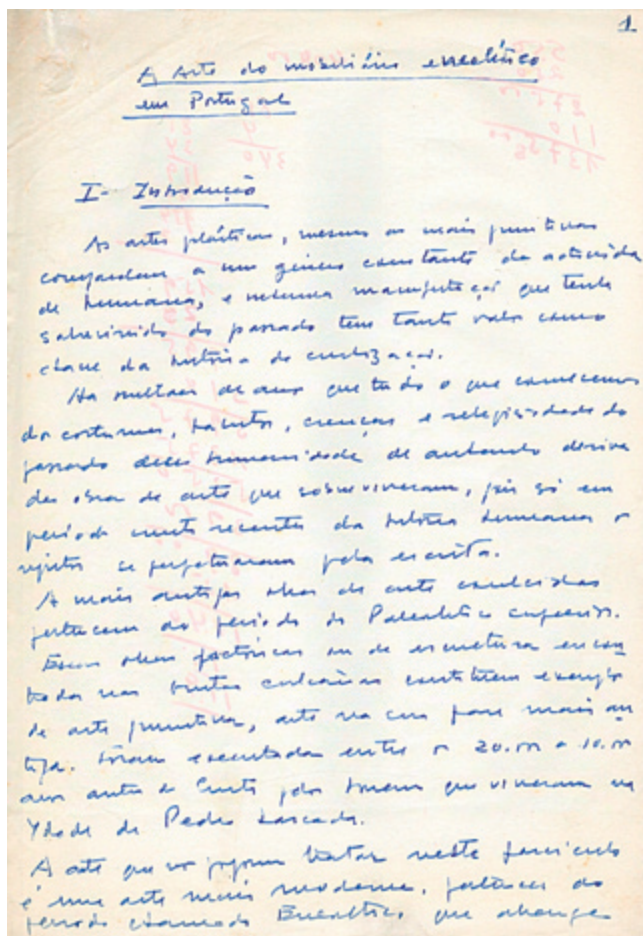 1
A Arte do mobiliário eneolítico
em Portugal
I - Introdução
As artes plásticas, mesmo as mais primitivas
a um género constante da activida
de humana, e nenhuma manifestação que tenha
sobrevivido do passado tem tanto valor como
chave da história da civilização.
Há milhares de anos que tudo o que conhecemos
dos costumes, hábitos, crenças e religiosidade do
passado desta humanidade de antanho deriva
das obras de arte que sobreviveram, pois só em
período muito recentes da história humana os
se perpetuaram pela escrita.
A mais antigas obras de arte conhecidas
pertencem ao período do Paleolítico superior.
Essas obras pictóricas ou de escultura encon
tradas nas grutas constituem exemplo
de arte primitiva, arte na sua fase mais an
tiga. Foram executadas entre os 20.000 a 10.000
anos antes de Cristo pelos homens que viveram na
Ydade da Pedra Lascada.
A arte que vos tratar neste fascículo
é uma arte mais moderna, pertence ao
período chamado Eneolítico, que abrange